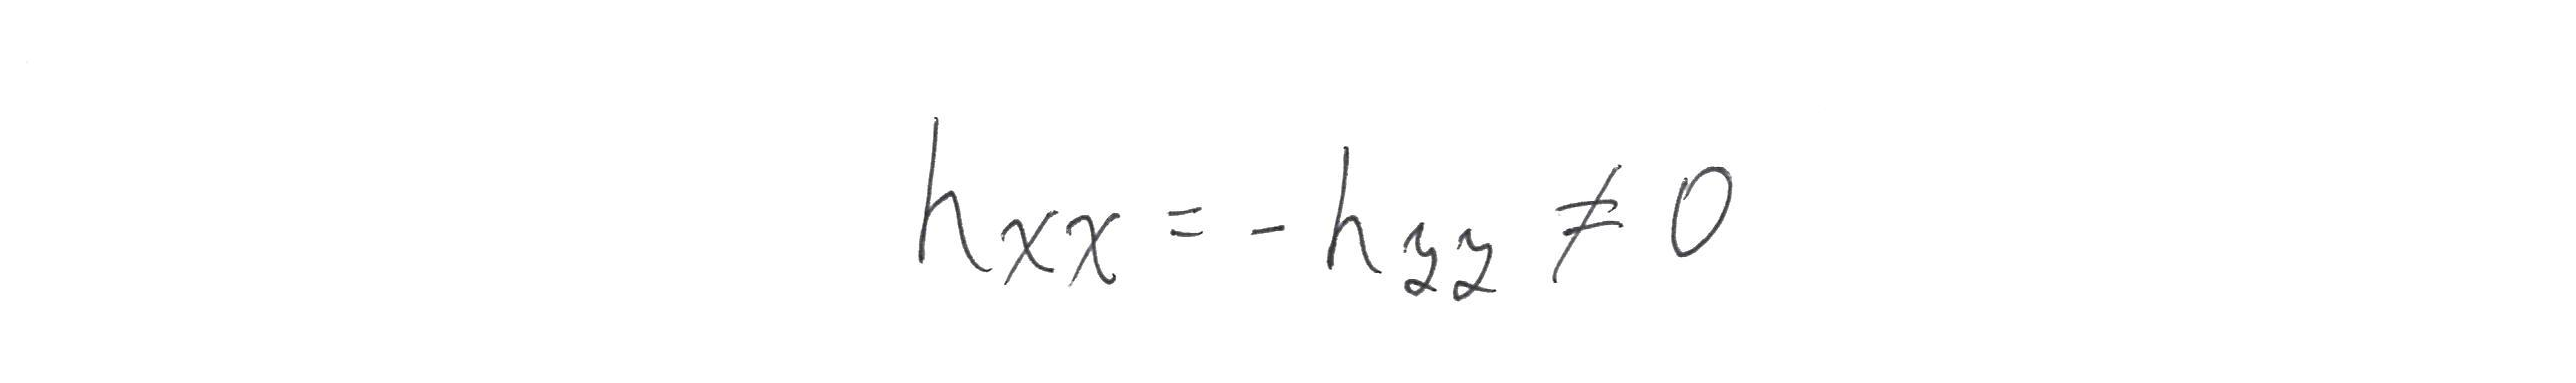 h_{xx} = -h_{yy} ≠ 0